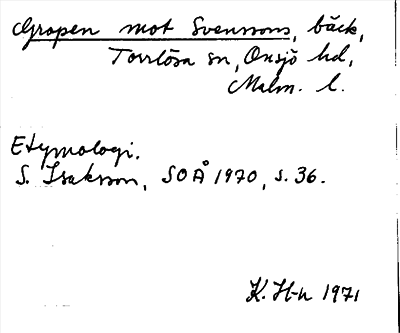 Gropen mot Svenssons, bäck,
Torrlösa sn, Onsjö hd,
Malm. l.
Etymologi.
S. Isaksson, SOÅ 1970, s. 36.
K. H-n 1971